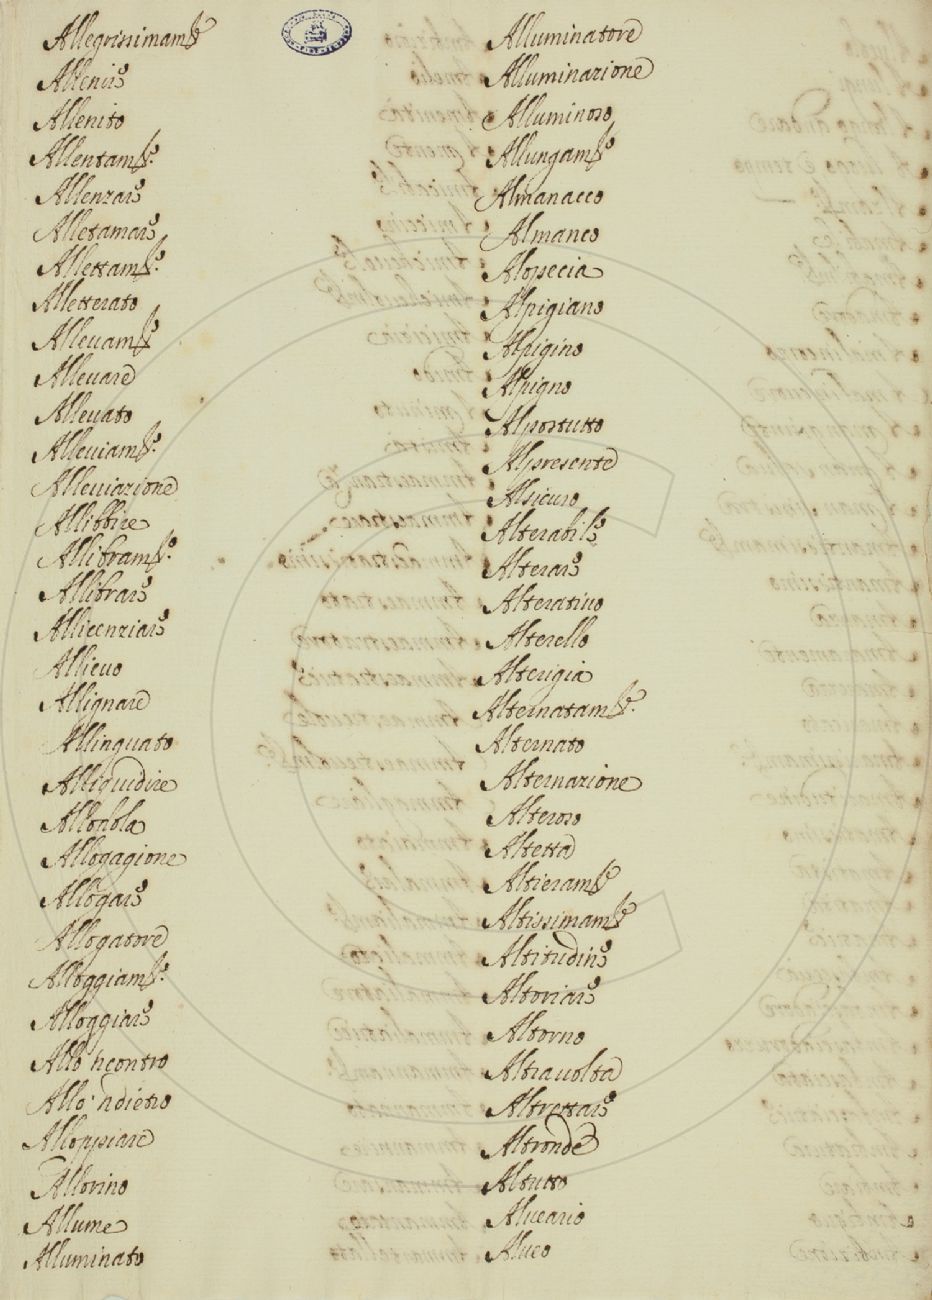 Allegrissimam.te
Allenire
Allenito
Allentam.to
Allenzare
Alletamare
Allettam.to
Alletterato
Alleuam.to
Alleuare
Alleuato
Alleuiam.to
Alleuiazione
Allibbire
Allibram.to
Allibrare
Allicenziare
Allieuo
Allignare
Allinguato
Alliquidire
Alloabla
Allogagione
Allogare
Allogatore
Alloggiam.to
Alloggiare
Allo'ncontro
Allo'ndietro
Alloppiare
Allorino
Allume
Alluminato
Alluminatore
Alluminazione
Alluminoso
Allungam.to
Almanacco
Almanco
Alopecia
Alpigiano
Alpigino
Alpigno
Alpostutto
Alpresente
Alsicuro
Alterabile
Alterare
Alteratiuo
Alterello
Alterigia
Alternatam.te
Alternato
Alternazione
Alteroso
Altetta
Altieram.te
Altissimam.te
Altitudine
Altoriare
Altorno
Altrauolta
Altrettare
Altronde
Altutto
Alueario
Alueo